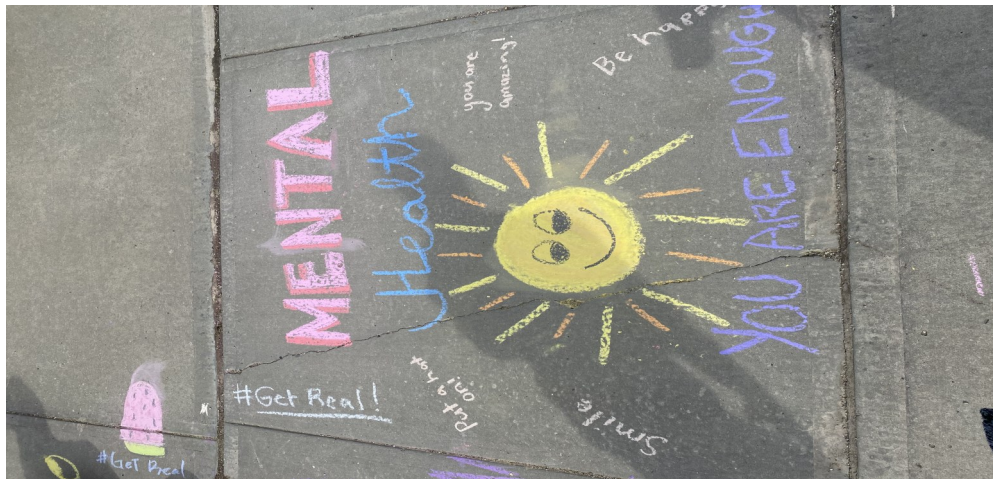 MENTAL
Health
you are
amazing!
Be happy
YOU ARE ENOUGH
Put a hat
on!
Smile
#Get Real!
#Get Real